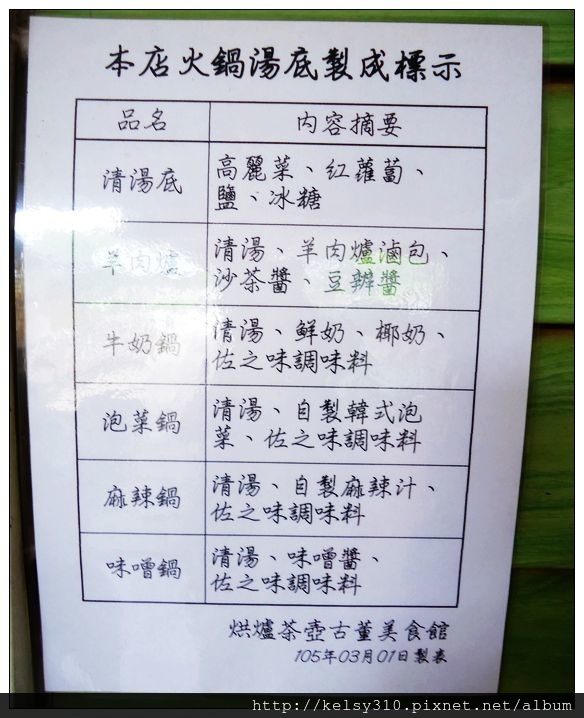 本店火鍋湯底製成標示
品名 內容摘要
清湯底 高麗菜、紅蘿蔔、
鹽、冰糖
羊肉爐 清湯、羊肉爐滷包、
沙茶醬、豆辦醬
牛奶鍋 清湯、鮮奶、椰奶、
佐之味調味料
泡菜鍋 清湯、自製韓式泡
菜、佐之味調味料
麻辣鍋 清湯、自製麻辣汁、
佐之味調味料
味噌鍋 清湯、味噌醬、
佐之味調味料
烘爐茶壺古董美食館
105年03月01日製表
http://kelsy310.pixnet.net/album